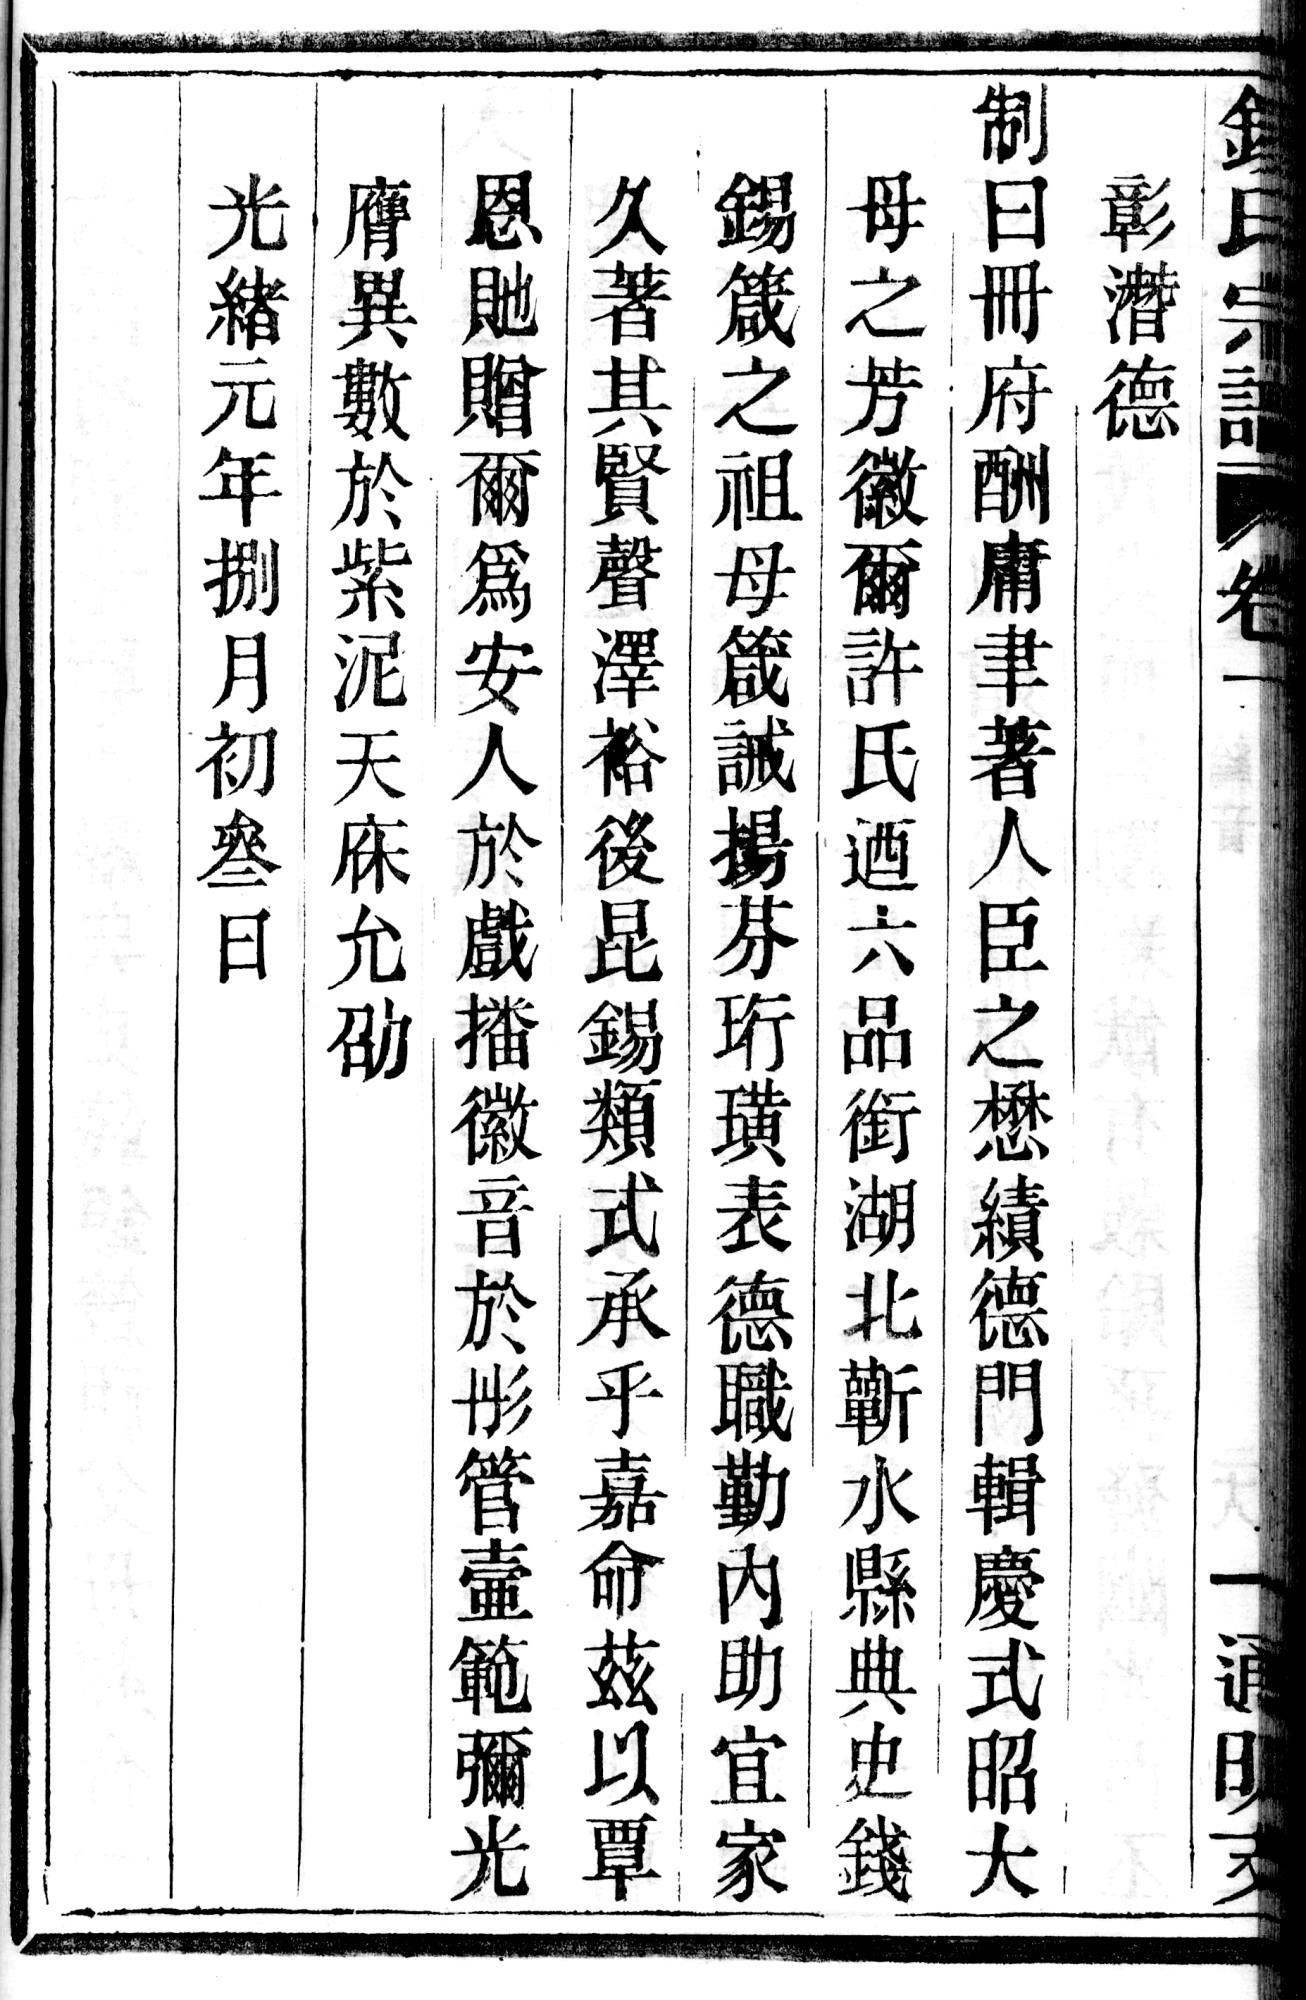 錢氏宗譜 卷一 一 通明支
彰潛德
制曰冊府酬庸聿著人臣之懋績德門輯慶式昭大
母之芳徽爾許氏迺六品銜湖北蘄水縣典史錢
錫箴之祖母箴誡揚芬珩璜表德職勤內助宜家
久著其賢聲澤裕後昆錫類式承乎嘉命茲以覃
恩貤贈爾爲安人於戲播徽音於彤管壼範彌光
膺異數於紫泥天庥允劭
光緒元年捌月初叄日